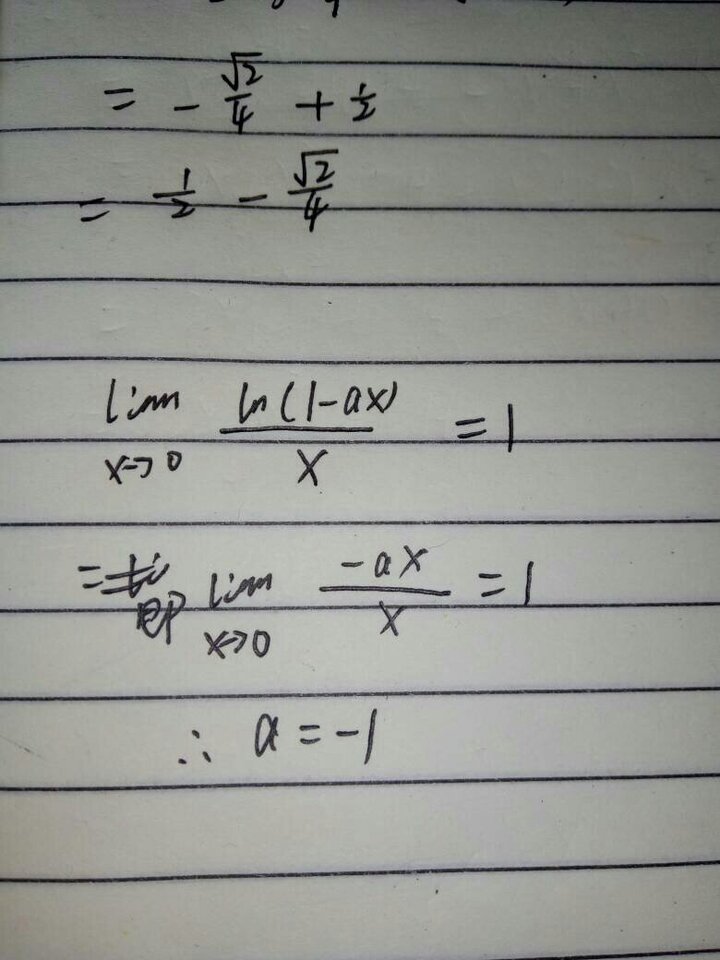 = - √2/4 + 1/2
= 1/2 - √2/4
lim x→0 ln(1-ax)/x = 1
= 即 lim x→0 -ax/x = 1
∴ a = -1